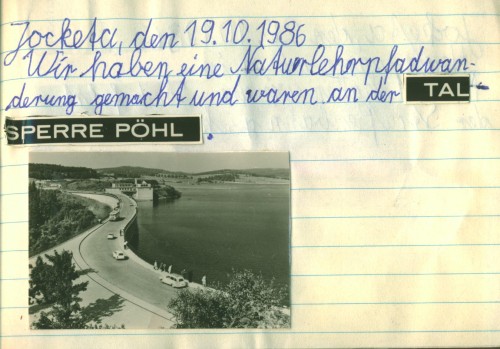 Jocketa, den 19.10.1986
Wir haben eine Naturlehrpfadwan-
derung gemacht und waren an der TAL-
SPERRE PÖHL.